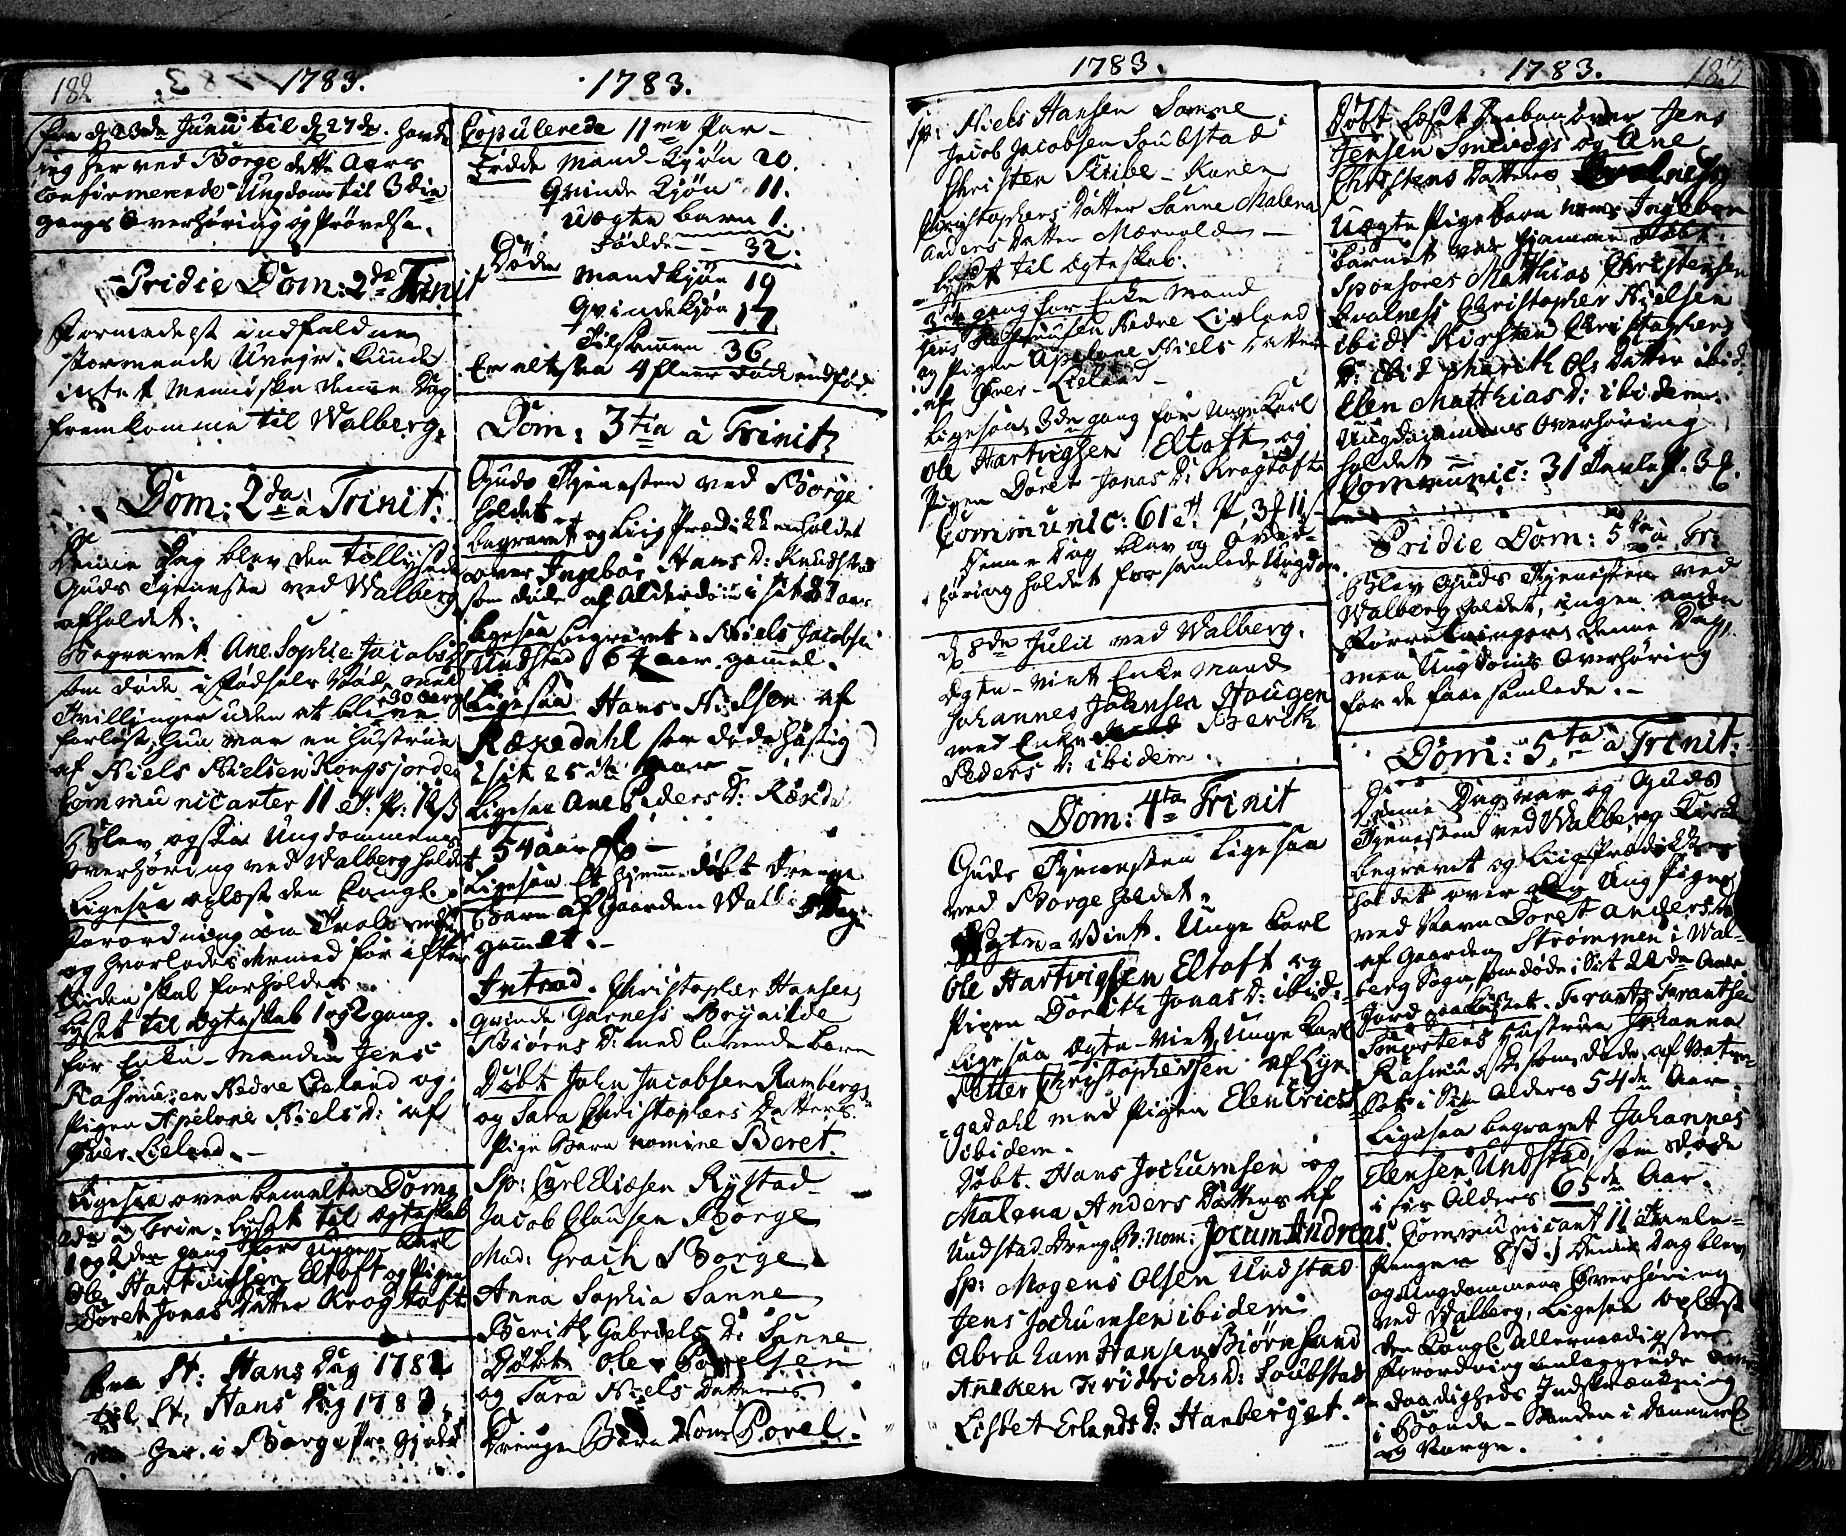 182
1783.
1783.
fra d 23de Junii til d 27de. havde
jeg her ved Borge dette Aars
Confirmerende Ungdom til 3die
gangs Overhøring og Prøvelse.
Pridie Dom: 2da Trinit
Formedelst indfaldne
stormende Uvejr kunde
intet Menniske denne Dag
fremkomme til Walberg.
Dom: 2da à Trinit:
Denne Dag blev den tillyste
Guds Tjeneste ved Walberg
afholdet:
Begravet Ane Sophie Jacobs
som døde i Fødsels Nød med
30 Aar
Tvillinger uden at blive
forløst, hun war en Hustrue
af Niels Nielsen Kongsjorde
Communicanter 11
Blev ogsaa Ungdommens
Overhøring ved Walberg holdet
Ligesaa oplæst den Kongl
Forordning om
og hvorledes dermed for efter
Tiden skal forholdes
Lyset til Ægteskab 1 og 2 gang.
for Enke-Manden Jens
Rasmusen Nedre Lieland og
Pigen Apelone Niels D: af
Øver Lieland.
Ligesaa ovenbemelte Dom
2da à Trin: lyset til Ægteskab
1 og 2den gang for unge Karl
Ole Hartvigsen Eltoft og Pigen
Doret Jonas Datter Kragtoft
Fra St: Hans Dag 1782
til St: Hans Dag 1783
her i Borge Præ Gjeld
Copulerede 11ve Par
Fødde Mand-Kjøn 20.
Qvinde Kjøn 11.
Uægte barn 1.
Fødde 32.
Døde
Mandkjøn 19
Qvindekjøn 17
Tilsamen 36
Er altsaa 4 fleer død end fød.
Dom: 3tia à Trinit:
Guds Tjenesten ved Borge
holdet
begravet og Liig Prædikken holdet
over Ingebor Hans D: Knudstad
som døde af Alderdom i sit 87 aar
Ligesaa begravet Niels Jacobsen
Undstad 64 aar gammel.
Ligesaa Hans Nielsen af
Rækedahl som døde hastig
i sit 25 Aar
Ligesaa Ane Peders D: Rækeda
54 aar
Ligesaa Et hjemme døbt Drenge
Barn af Gaarden Walle Dage
gamelt.
Introd. Christopher Hansens
qvinde Garness Brynilde
Biørns D: med levende barn
Døbt John Jacobsen Ramberg
og Sara Christophers Datters
Pige Barn nomine Beret.
Sp: Carl Eliæsen Rystad
Jacob Clausen Borge
Mad: Grach Borge
Anna Sophia Sanne
Berith Gabriels D: Sanne
Døbt Ole Povelsen
og Sara Niels Datters
Drenge Barn Nom Povel.
1783.
1783.
183
Sp: Niels Hansen Sanne
Jacob Jacobsen Soubstad
Christen Skribe - Karen
Christophers Datter Sanne Malena
Anders Datter Mærvold
Lyset til Ægteskab.
3die gang for Enke Mand
Jens Rasmusen Nedre Lieland
og Pigen Apelone Niels Datter
af Øver-Lieland
Ligesaa 3de gang for Unge Karl
Ole Hartvigsen Eltoft og
Pigen Doret Jonas D: Kragtoft
Communic: 61
Denne Dag blev og Over-
høring holdet for samlede Ungdom
d 8de Julii ved Walberg.
Ægte-viet Enke Mand
Johannes Johnsen Hougen
med Enke Berith
Peders D: ibidem.
Dom: 4ta Trinit
Guds Tjenesten ligesaa
ved Borge holdet.
Ægte-Viet. Unge Karl
Ole Hartvigsen Eltoft og
Pigen Dorith Jonas D: ibid:
Ligesaa Ægte-Viet Unge Karl
Petter Christophersen af Lyn-
gedahl med Pigen Elen Erics D
ibidem.
Døbt. Hans Jochumsen og
Malena Anders Datters af
Undstad Dreng B: nom: Jocum Andreas.
Sp: Mogens Olsen Undstad
Jens Jochumsen ibidem
Abraham Hansen Biørnsand
Aneken Fridrichs D: Soubstad
Lisbet Erlands D: Hanberget.
Døbt over Jens
Jensen Smevogs og Ane
Christens Datters Evalness
Uægte Pigebarn nom: Ingebor
barnet var hjemme døbt.
Sponsores Matthias Christensen
Evalness Christopher Nielsen
ibid: Kirsten Christophers
D: ibid Marith Ols Datter ibid:
Elen Matthias D: ibidem
Ungdommens Overhøring
holdet
Communic: 31
Pridie Dom: 5ta à Tr:
Blev Guds Tjenesten ved
Walberg holdet, ingen anden
Forretninger denne Dag,
men Ungdoms Overhøring
for de faae samlede.
Dom: 5ta à Trinit:
Denne Dag war og Guds
Tjenesten ved Walberg Kirke
begravet og Liig Prædikken
holdet over Ung Pige
ved Navn Doret Anders D
af Gaarden Strømmen i Wal-
berg Sogn som døde i sit 22de Aar
Jord paakastet. Frants Frantsen
Hustrue Johanna
Rasmus D: som døde af
i Sin Alders 54de Aar.
Ligesaa begravet Johannes
Elensen Undstad, som døde
i sin Alders 65de Aar.
Communicant 11 Tavle-
Penger 8 ß. Denne Dag blev
og Ungdommens Overhøring
ved Walberg, Ligesaa oplæst
den Kongl allernaadigste
Forordning anlangende
Indskrænkning
i Bonde-Standen i Danmark
og Norge.